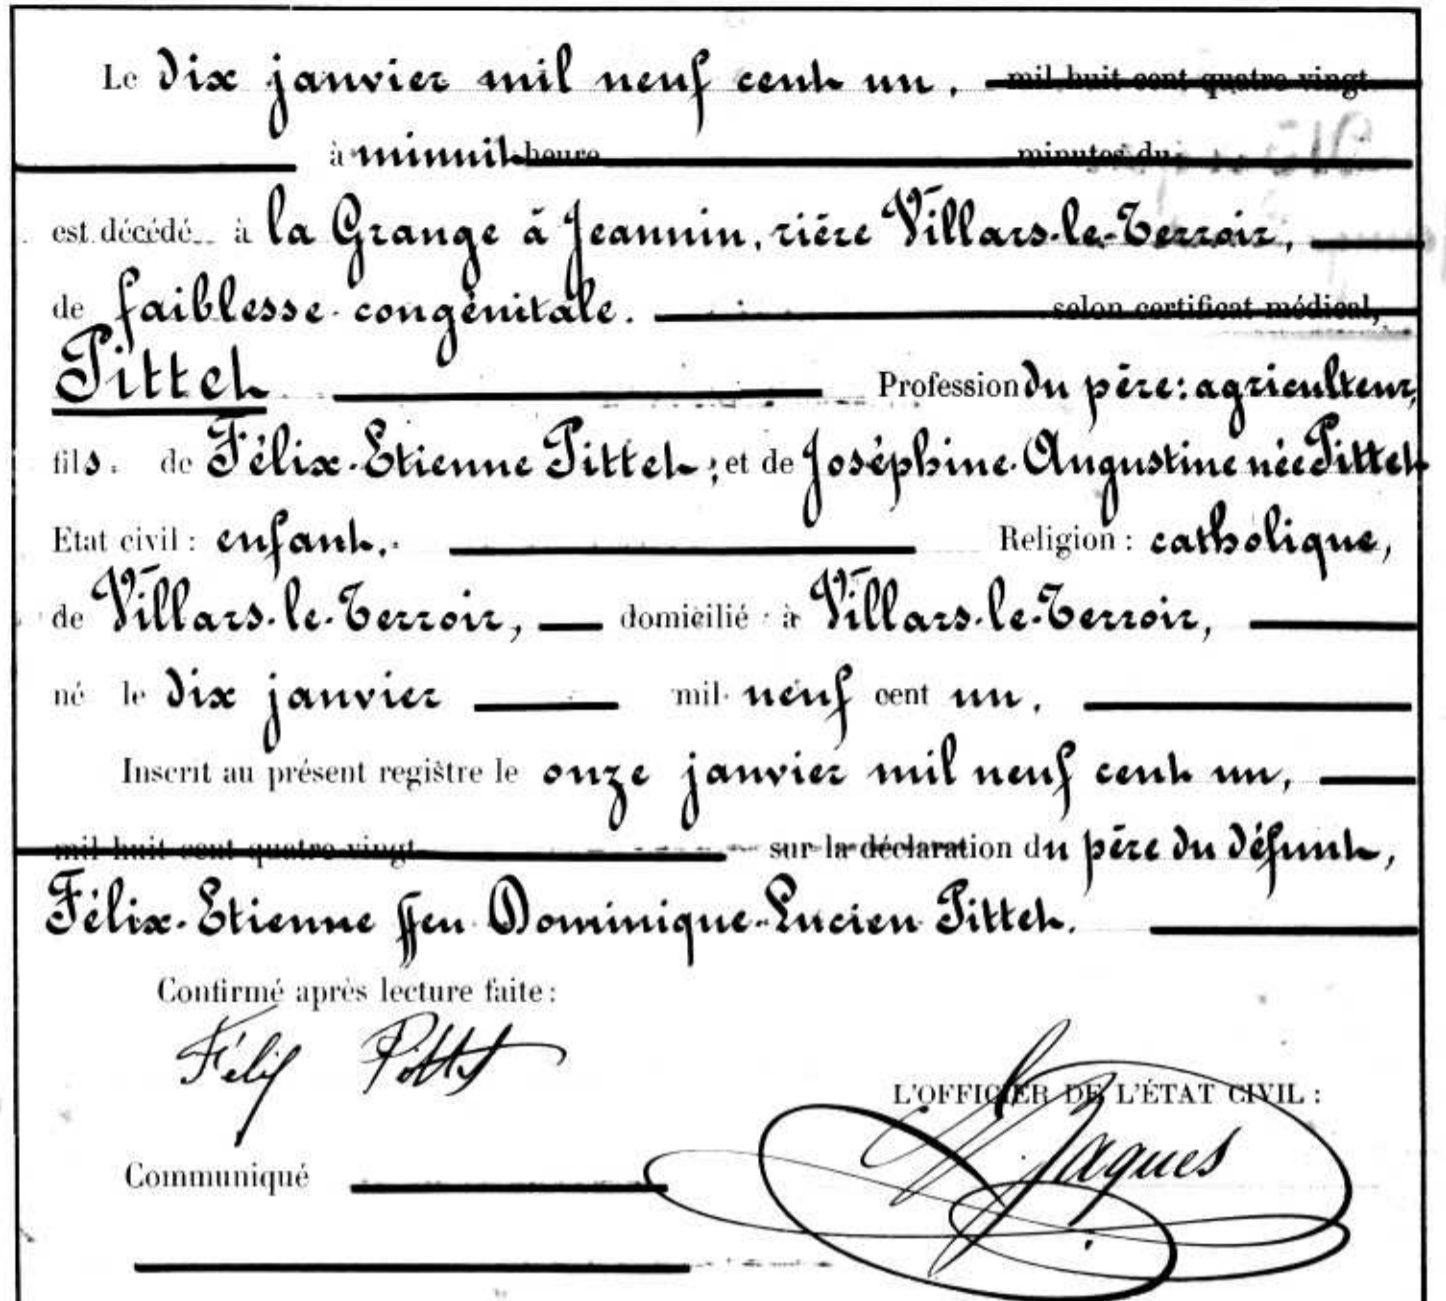 Le dix janvier mil neuf cent un. mil huit cent quatre vingt
à minuit heure minutes du
est décédé à la Grange à Jeannin, rière Villars-le-Terroir,
de faiblesse congénitale. selon certificat médical,
Pittet Profession du père: agriculteur,
fils de Félix-Etienne Pittet; et de Joséphine-Augustine née Pittet
Etat civil: enfant. Religion: catholique,
de Villars-le-Terroir, domicilié à Villars-le-Terroir,
né le dix janvier mil neuf cent un.
Inscrit au présent registre le onze janvier mil neuf cent un,
mil huit cent quatre vingt sur la déclaration du père du défunt,
Félix-Etienne ffeu Dominique-Lucien Pittet.
Confirmé après lecture faite:
Félix Pittet
L'OFFICIER DE L'ÉTAT CIVIL:
Jaques
Communiqué